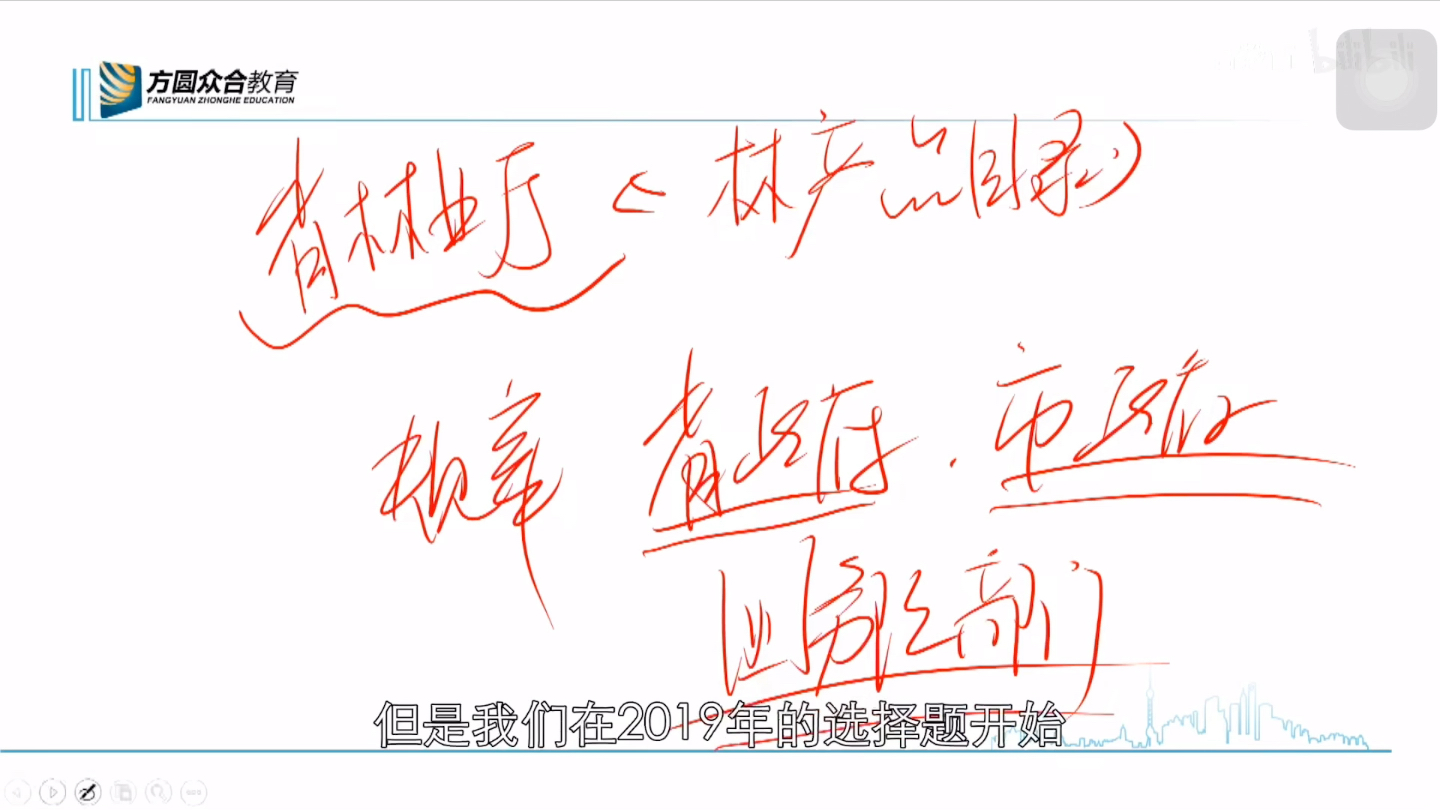 方圆众合教育
FANGYUAN ZHONGHE EDUCATION
bilibili
省林业厅 < 林产品目录
规章 省政府.市政府
国务院各部门
但是我们在2019年的选择题开始